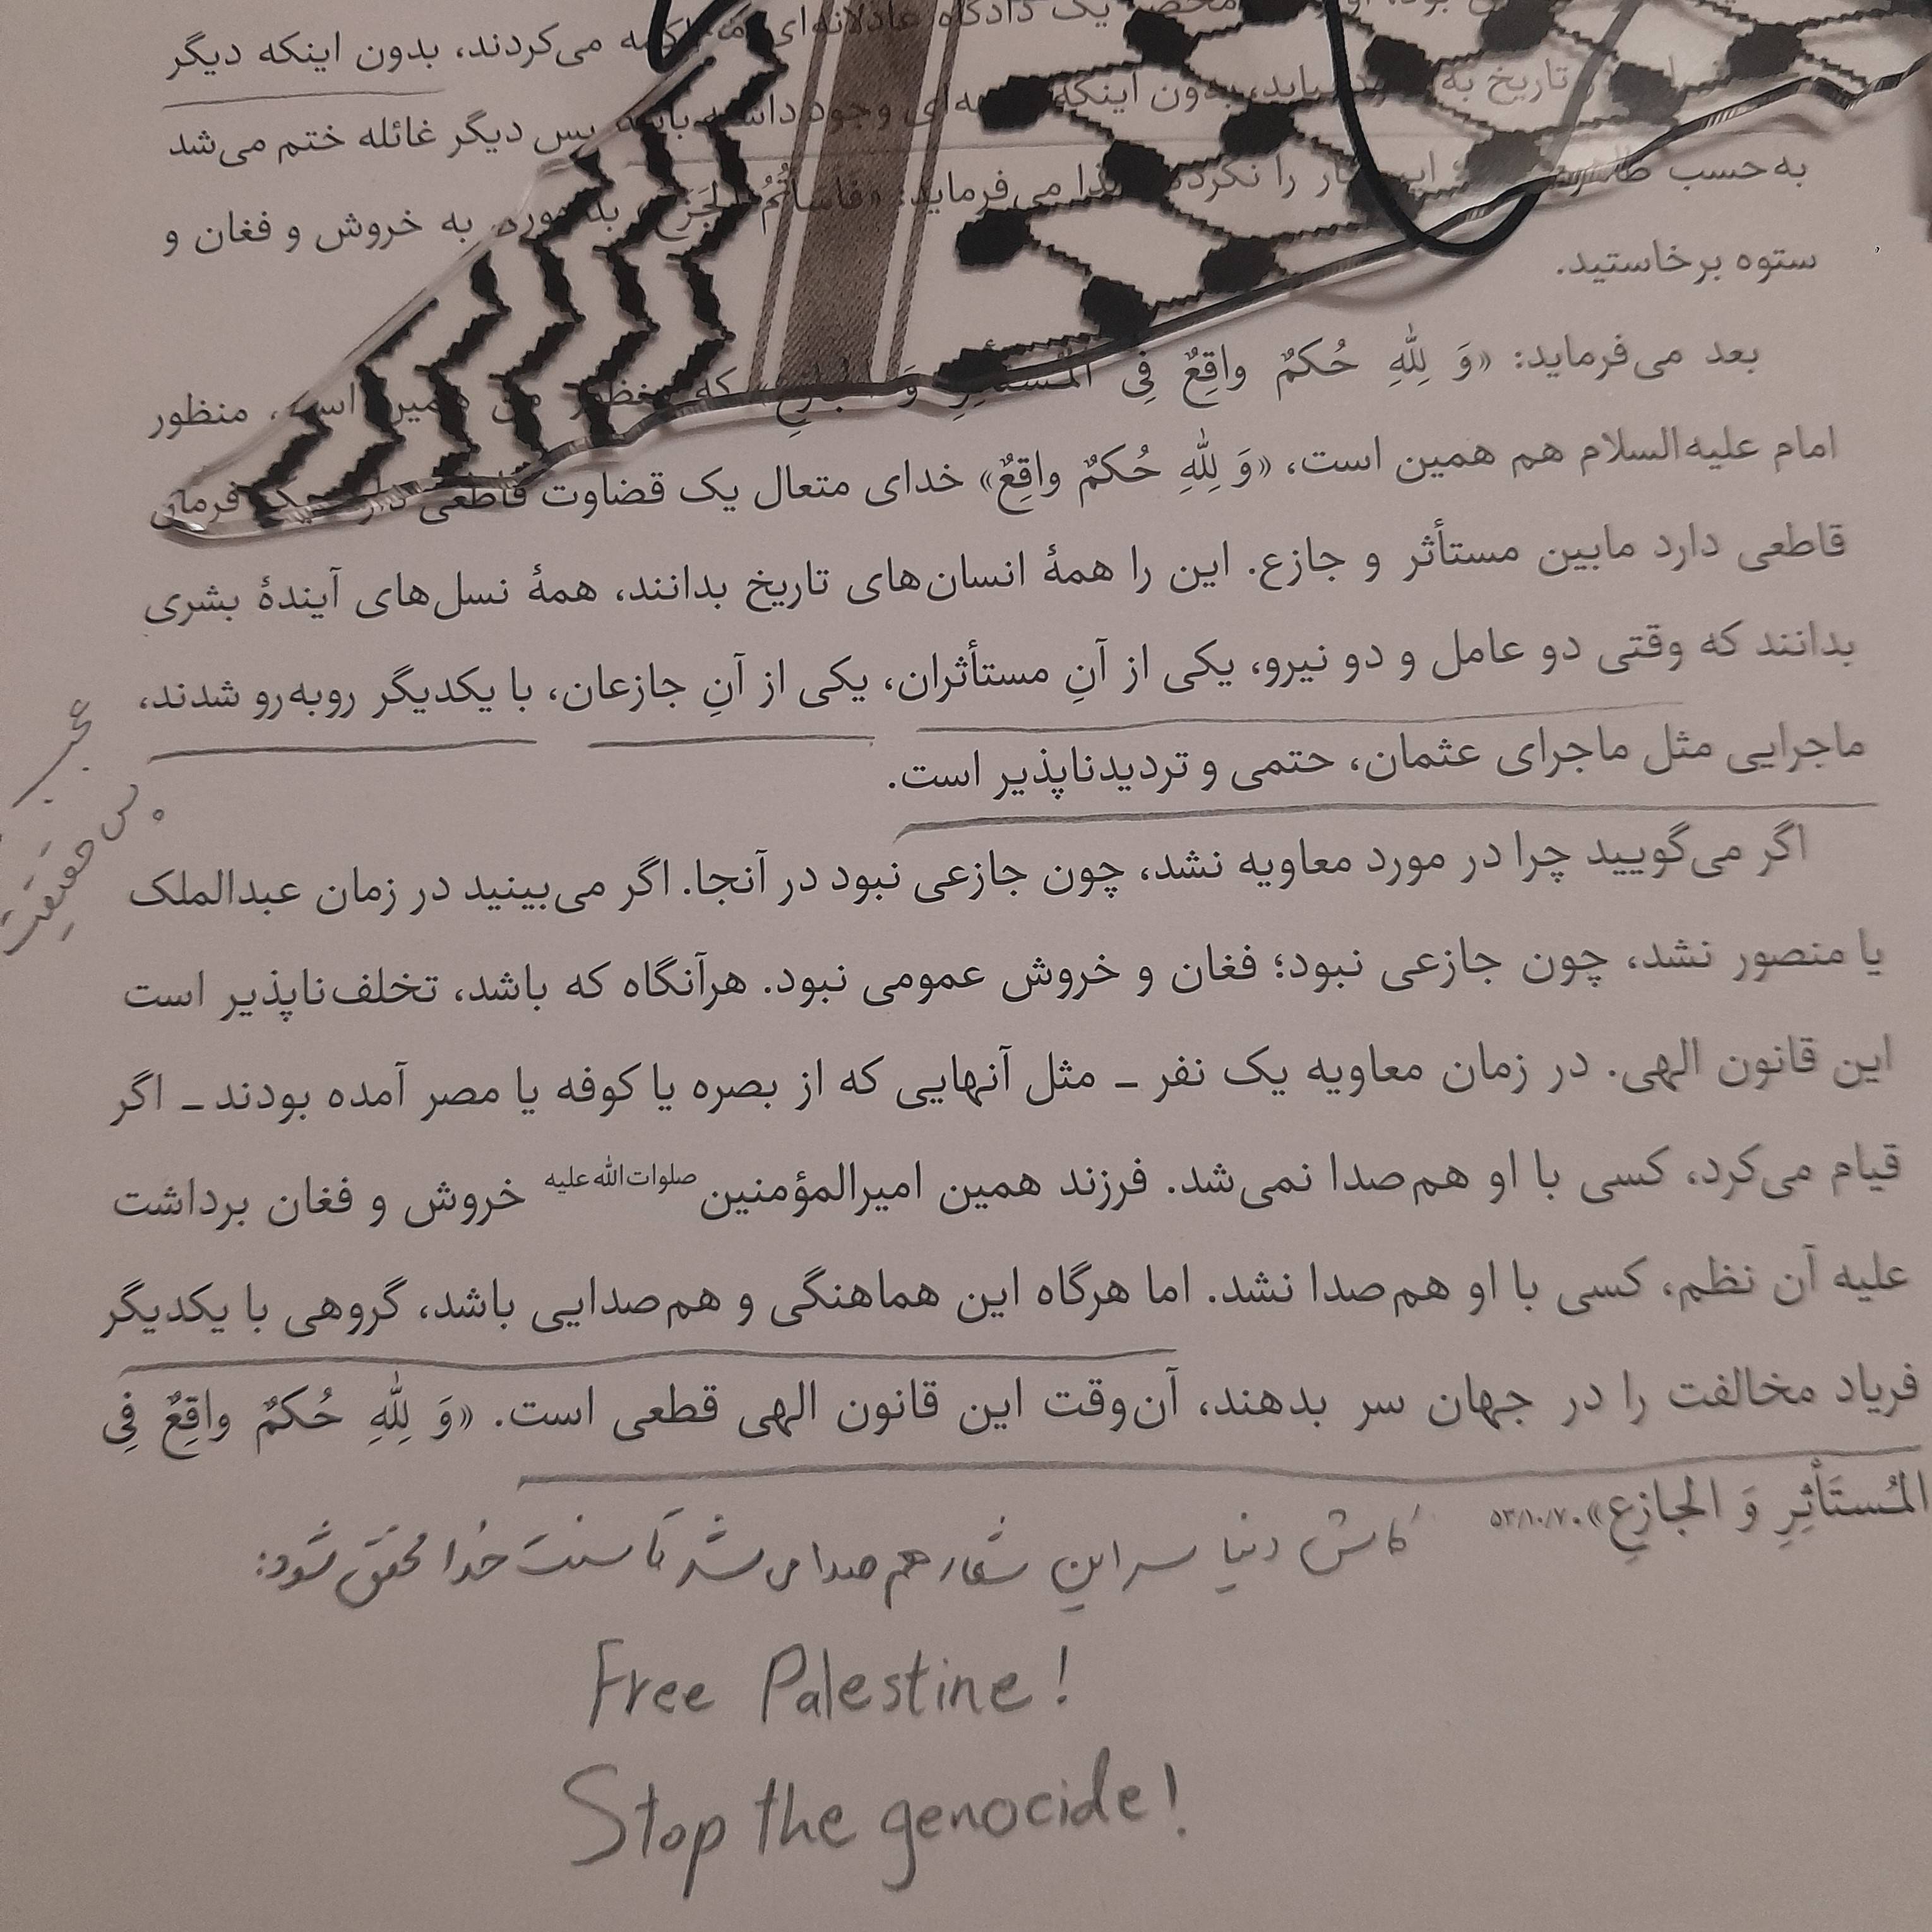 یک دادگاه عادلانه‌ای می‌کردند، بدون اینکه دیگر
تاریخ به بدون اینکه وجود پس دیگر غائله ختم می‌شد
به‌حسب را می‌فرماید: به خروش و فغان و
ستوه برخاستید.
بعد می‌فرماید: «وَ لِلّٰهِ حُکمٌ واقِعٌ فِي که منظور
امام علیه‌السلام هم همین است، «وَ لِلّٰهِ حُکمٌ واقِعٌ» خدای متعال یک قضاوت قاطعی فرمان
قاطعی دارد مابین مستأثر و جازع. این را همهٔ انسان‌های تاریخ بدانند، همهٔ نسل‌های آیندهٔ بشری
بدانند که وقتی دو عامل و دو نیرو، یکی از آنِ مستأثران، یکی از آنِ جازعان، با یکدیگر روبه‌رو شدند،
ماجرایی مثل ماجرای عثمان، حتمی و تردیدناپذیر است.
حقیقت
اگر می‌گویید چرا در مورد معاویه نشد، چون جازعی نبود در آنجا. اگر می‌بینید در زمان عبدالملک
یا منصور نشد، چون جازعی نبود؛ فغان و خروش عمومی نبود. هرآنگاه که باشد، تخلف‌ناپذیر است
این قانون الهی. در زمان معاویه یک نفر ـ مثل آنهایی که از بصره یا کوفه یا مصر آمده بودند ـ اگر
قیام می‌کرد، کسی با او هم‌صدا نمی‌شد. فرزند همین امیرالمؤمنین صلوات‌الله‌علیه خروش و فغان برداشت
علیه آن نظم، کسی با او هم‌صدا نشد. اما هرگاه این هماهنگی و هم‌صدایی باشد، گروهی با یکدیگر
فریاد مخالفت را در جهان سر بدهند، آن‌وقت این قانون الهی قطعی است. «وَ لِلّٰهِ حُکمٌ واقِعٌ فِي
المُستَأثِرِ وَ الجازِعِ» ۵۳/۱۰/۷۰
کاش دنیا سر این شعار هم صدا می‌شد تا سنت خدا محقق شود:
Free Palestine!
Stop the genocide!